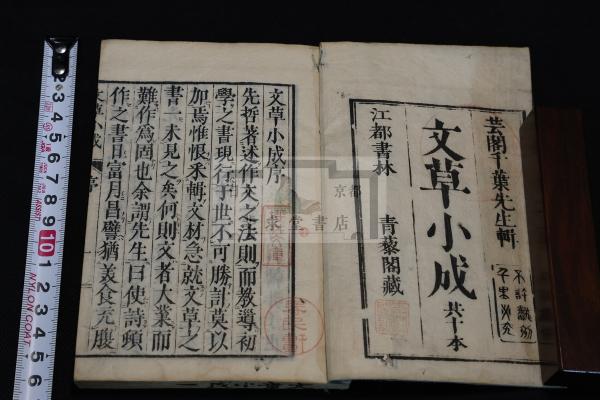 芸閣千葉先生輯
文草小成 共十本
不許翻刻
千里必究
江都書林 青藜閣藏
文草小成序
先哲著述作文之法則而教導初
學之書現行于世不可勝計莫以
加焉惟恨釆輯文材急就文草之
書未見之矣何則文者大業而
難作爲固也余謂先生曰使詩頻
作之書庫富月昌譬猶美食充腹
文草小成 序
京都
書店
NYLON COAT
2 3 4 5 6 7 8 9 10 1 2 3 4 5 6